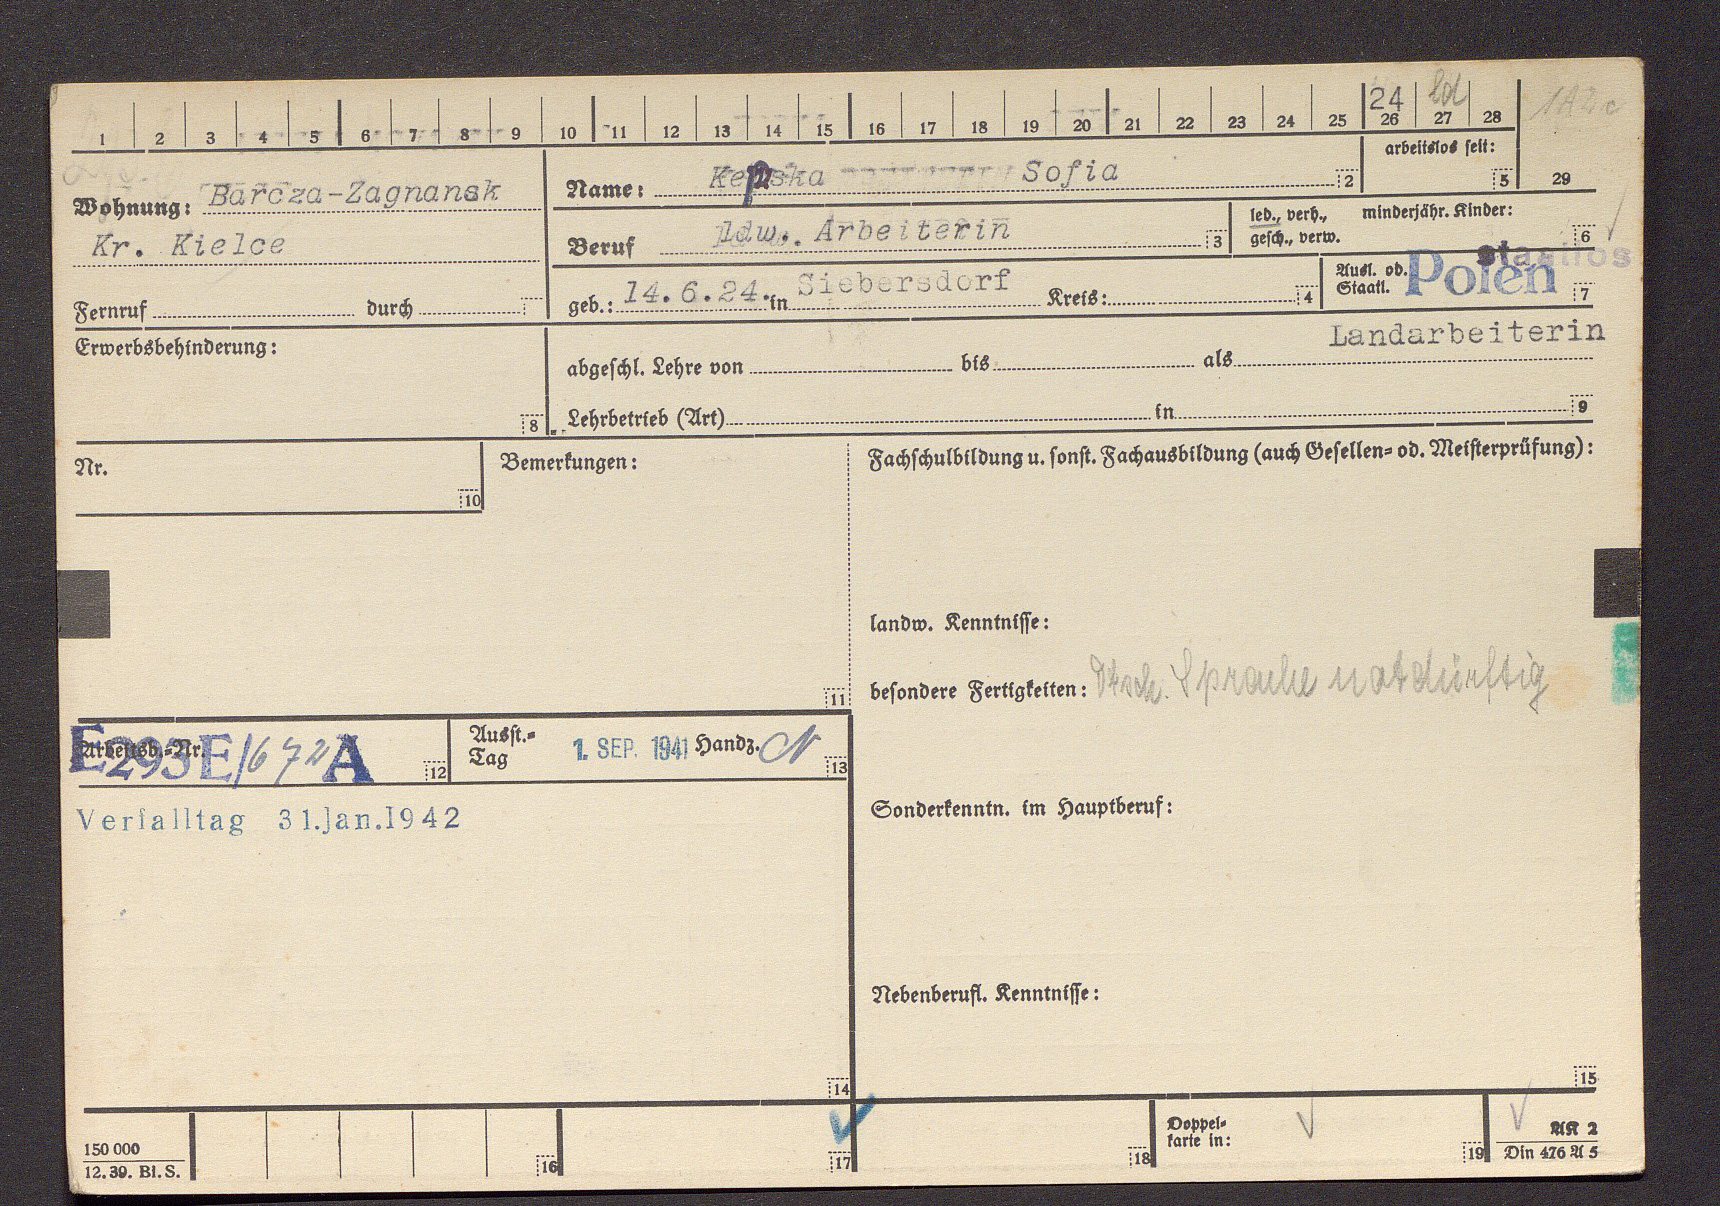 24 ld
1 2 3 4 5 6 7 8 9 10 11 12 13 14 15 16 17 18 19 20 21 22 23 24 25 26 27 28
arbeitslos seit:
5 29
Wohnung: Barcza-Zagnansk
Kr. Kielce
Name: Kepska Sofia 2
Beruf ldw. Arbeiterin 3
led., verh., minderjähr. Kinder:
gesch., verw. 6
geb.: 14.6.24. in Siebersdorf Kreis: 4
Ausl. od. Staatl. Polen staatlos 7
Fernruf durch
Erwerbsbehinderung:
8
Landarbeiterin
abgeschl. Lehre von bis als
Lehrbetrieb (Art) in 9
Nr.
10
Bemerkungen:
11
Fachschulbildung u. sonst. Fachausbildung (auch Gesellen= od. Meisterprüfung):
landw. Kenntnisse:
besondere Fertigkeiten: Dtsch. Sprache notdürftig
Arbeitsb.-Nr.
E293E/672A 12
Ausst.=
Tag 1. SEP. 1941 Handz. 13
Verfalltag 31.Jan.1942
14
Sonderkenntn. im Hauptberuf:
Nebenberufl. Kenntnisse:
15
150 000
12. 39. Bl. S.
16 17 18
Doppel=
karte in:
19
AK 2
Din 476 A 5